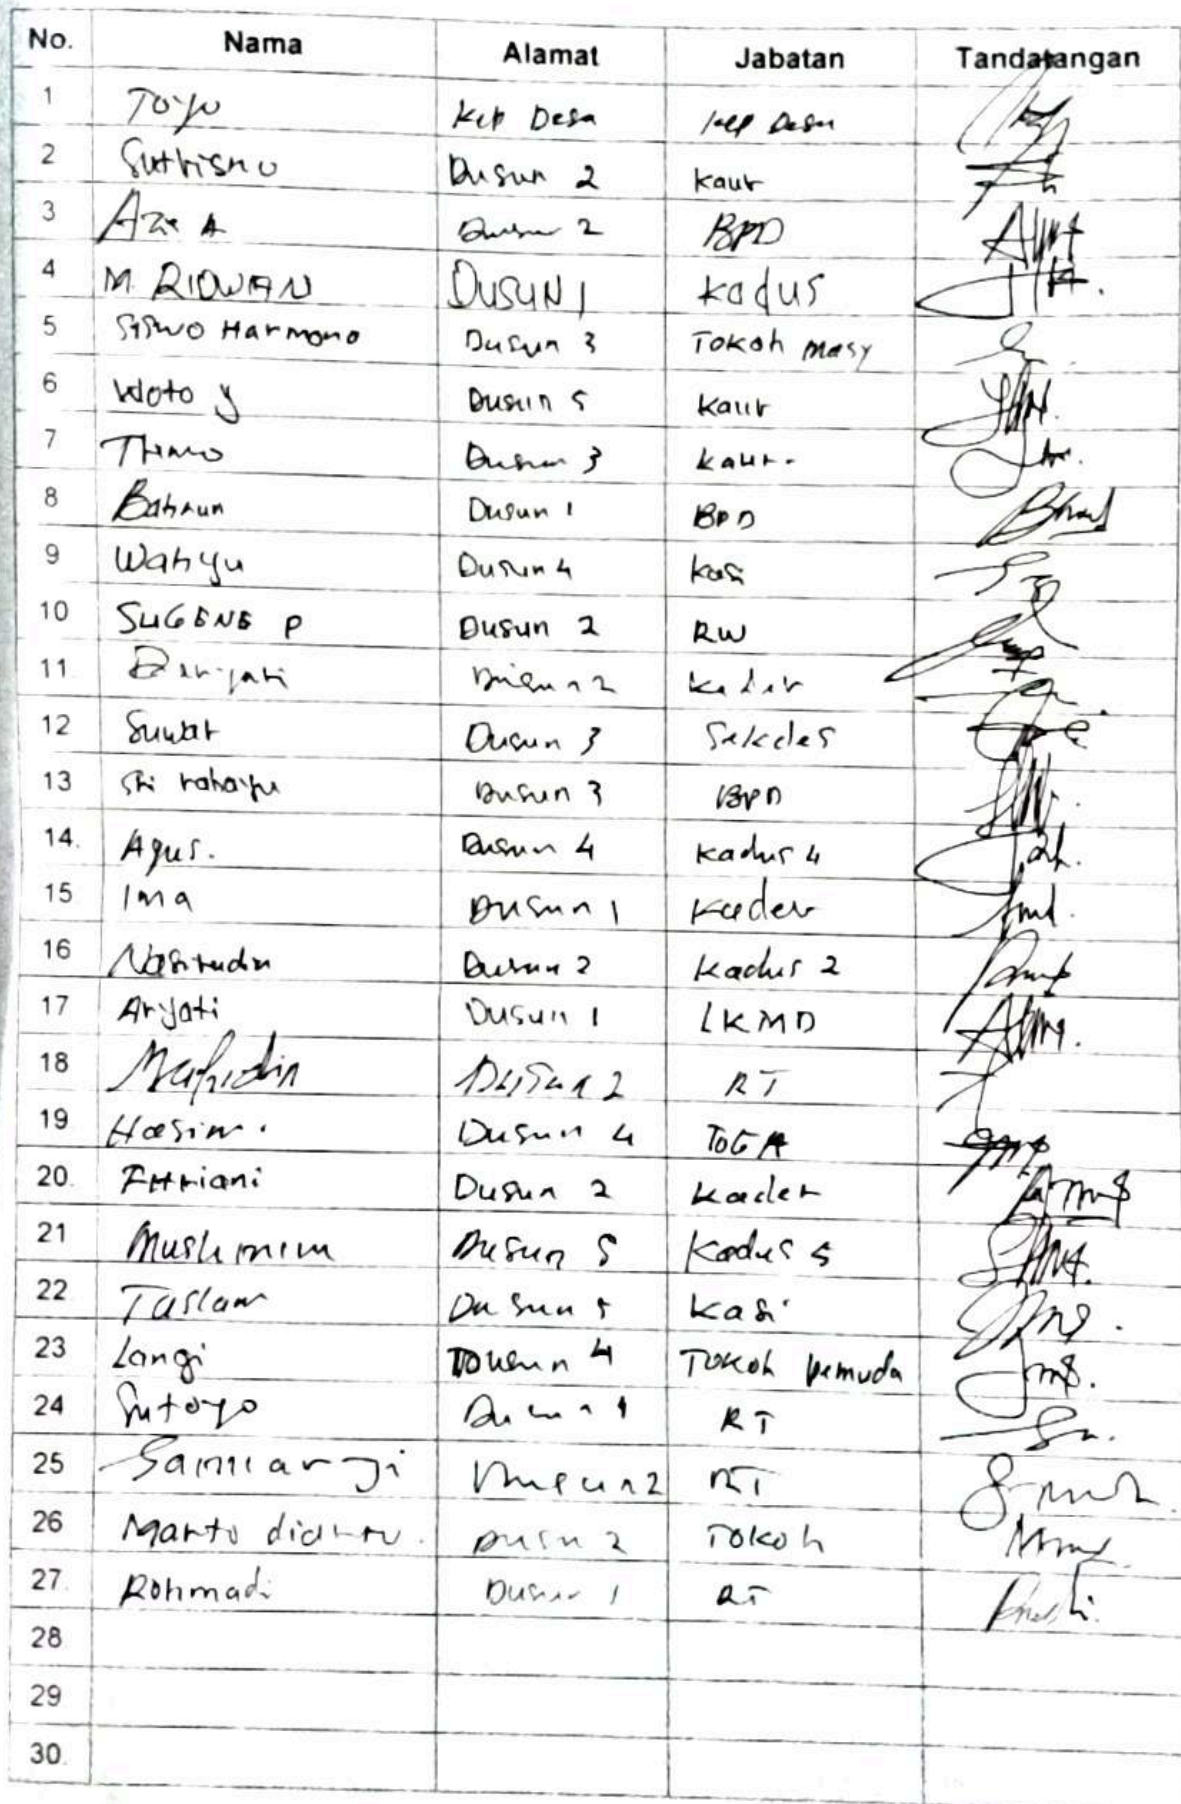 No. Nama Alamat Jabatan Tandatangan
1 Toyo Kep Desa Kep Desa
2 Sutrisno Dusun 2 Kaur
3 Dusun 2 BPD
4 M. RIDWAN DUSUN 1 kadus
5 Siswo Harmono Dusun 3 Tokoh masy
6 Woto y Dusun 5 Kaur
7 Dusun 3 Kaur.
8 Bahrun Dusun 1 BPD
9 Wahyu Dusun 4 kasi
10 SUGENG P Dusun 2 RW
11. Dusun 2 Kader
12 Suwar Dusun 3 Sekdes
13 Sri rahayu Dusun 3 BPD
14. Agus. Dusun 4 Kadus 4
15 Ima Dusun 1 Kader
16 Nasirudin Dusun 2 Kadus 2
17 Aryati Dusun 1 LKMD
18 Dusun 2 RT
19 Hasim. Dusun 4 TOGA
20. Fitriani Dusun 2 Kader
21 Muslimim Dusun 5 Kadus 5
22 Taslam Dusun 5 Kasi
23 Langi Dusun 4 Tokoh pemuda
24 Sutoyo Dusun 1 RT
25 Dusun 2 RT
26 Marto Dusun 2 Tokoh
27. Rohmadi Dusun 1 RT
28
29
30.